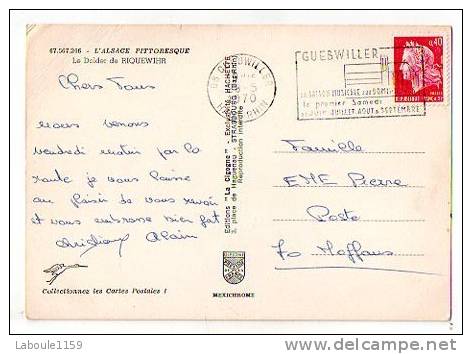 67.567.206 - L'ALSACE PITTORESQUE
Le Dolder de RIQUEWIHR
Chers Tous
nous venons
vendredi matin par la
route je vous laisse
au plaisir de vous revoir
et vous embrasse bien fort
Alain
Collectionnez les Cartes Postales !
Editions "La Cigogne" - Exclusivité HACHETTE
3, place de Haguenau - STRASBOURG (Bas-Rhin)
Reproduction interdite
MEXICHROME
GUEBWILLER
70
HAUT-RHIN
GUEBWILLER
LA SAISON MUSICALE aux DOMINICAINS
le premier Samedi
de JUIN JUILLET AOUT & SEPTEMBRE
0,40
REPUBLIQUE FRANÇAISE
Famille
Pierre
Poste
70
© Laboule1159
delcampe.net